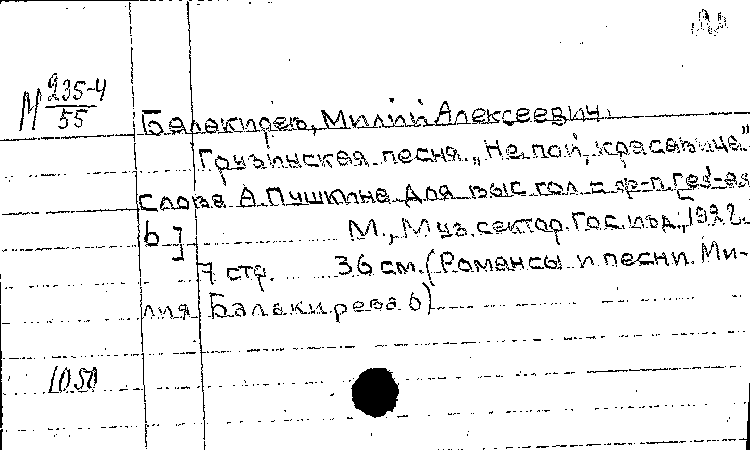 М 235-4
55
Балакирев, Милий Алексеевич.
Грузинская песня. „Не пой, красавица”
Слова А. Пушкина. Для выс гол с ф-п. [es-as
b]
М., Муз. сектор. Гос. изд., [1922.
7 стр. 36 см. (Романсы и песни. Ми-
лия Балакирева 6)
1050